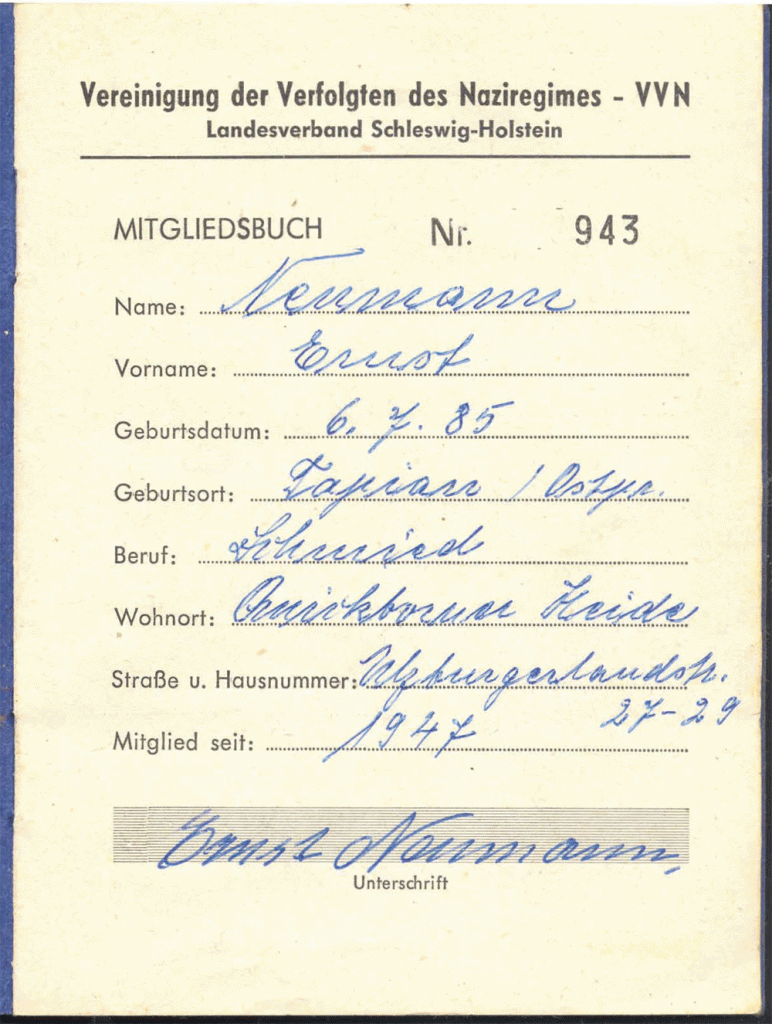 Vereinigung der Verfolgten des Naziregimes - VVN
Landesverband Schleswig-Holstein
MITGLIEDSBUCH Nr. 943
Name: Neumann
Vorname: Ernst
Geburtsdatum: 6. 7. 85
Geburtsort: Tapiau / Ostpr.
Beruf: Schmied
Wohnort: Quickborner Heide
Straße u. Hausnummer: Ulzburgerlandstr.
27-29
Mitglied seit: 1947
Ernst Neumann
Unterschrift